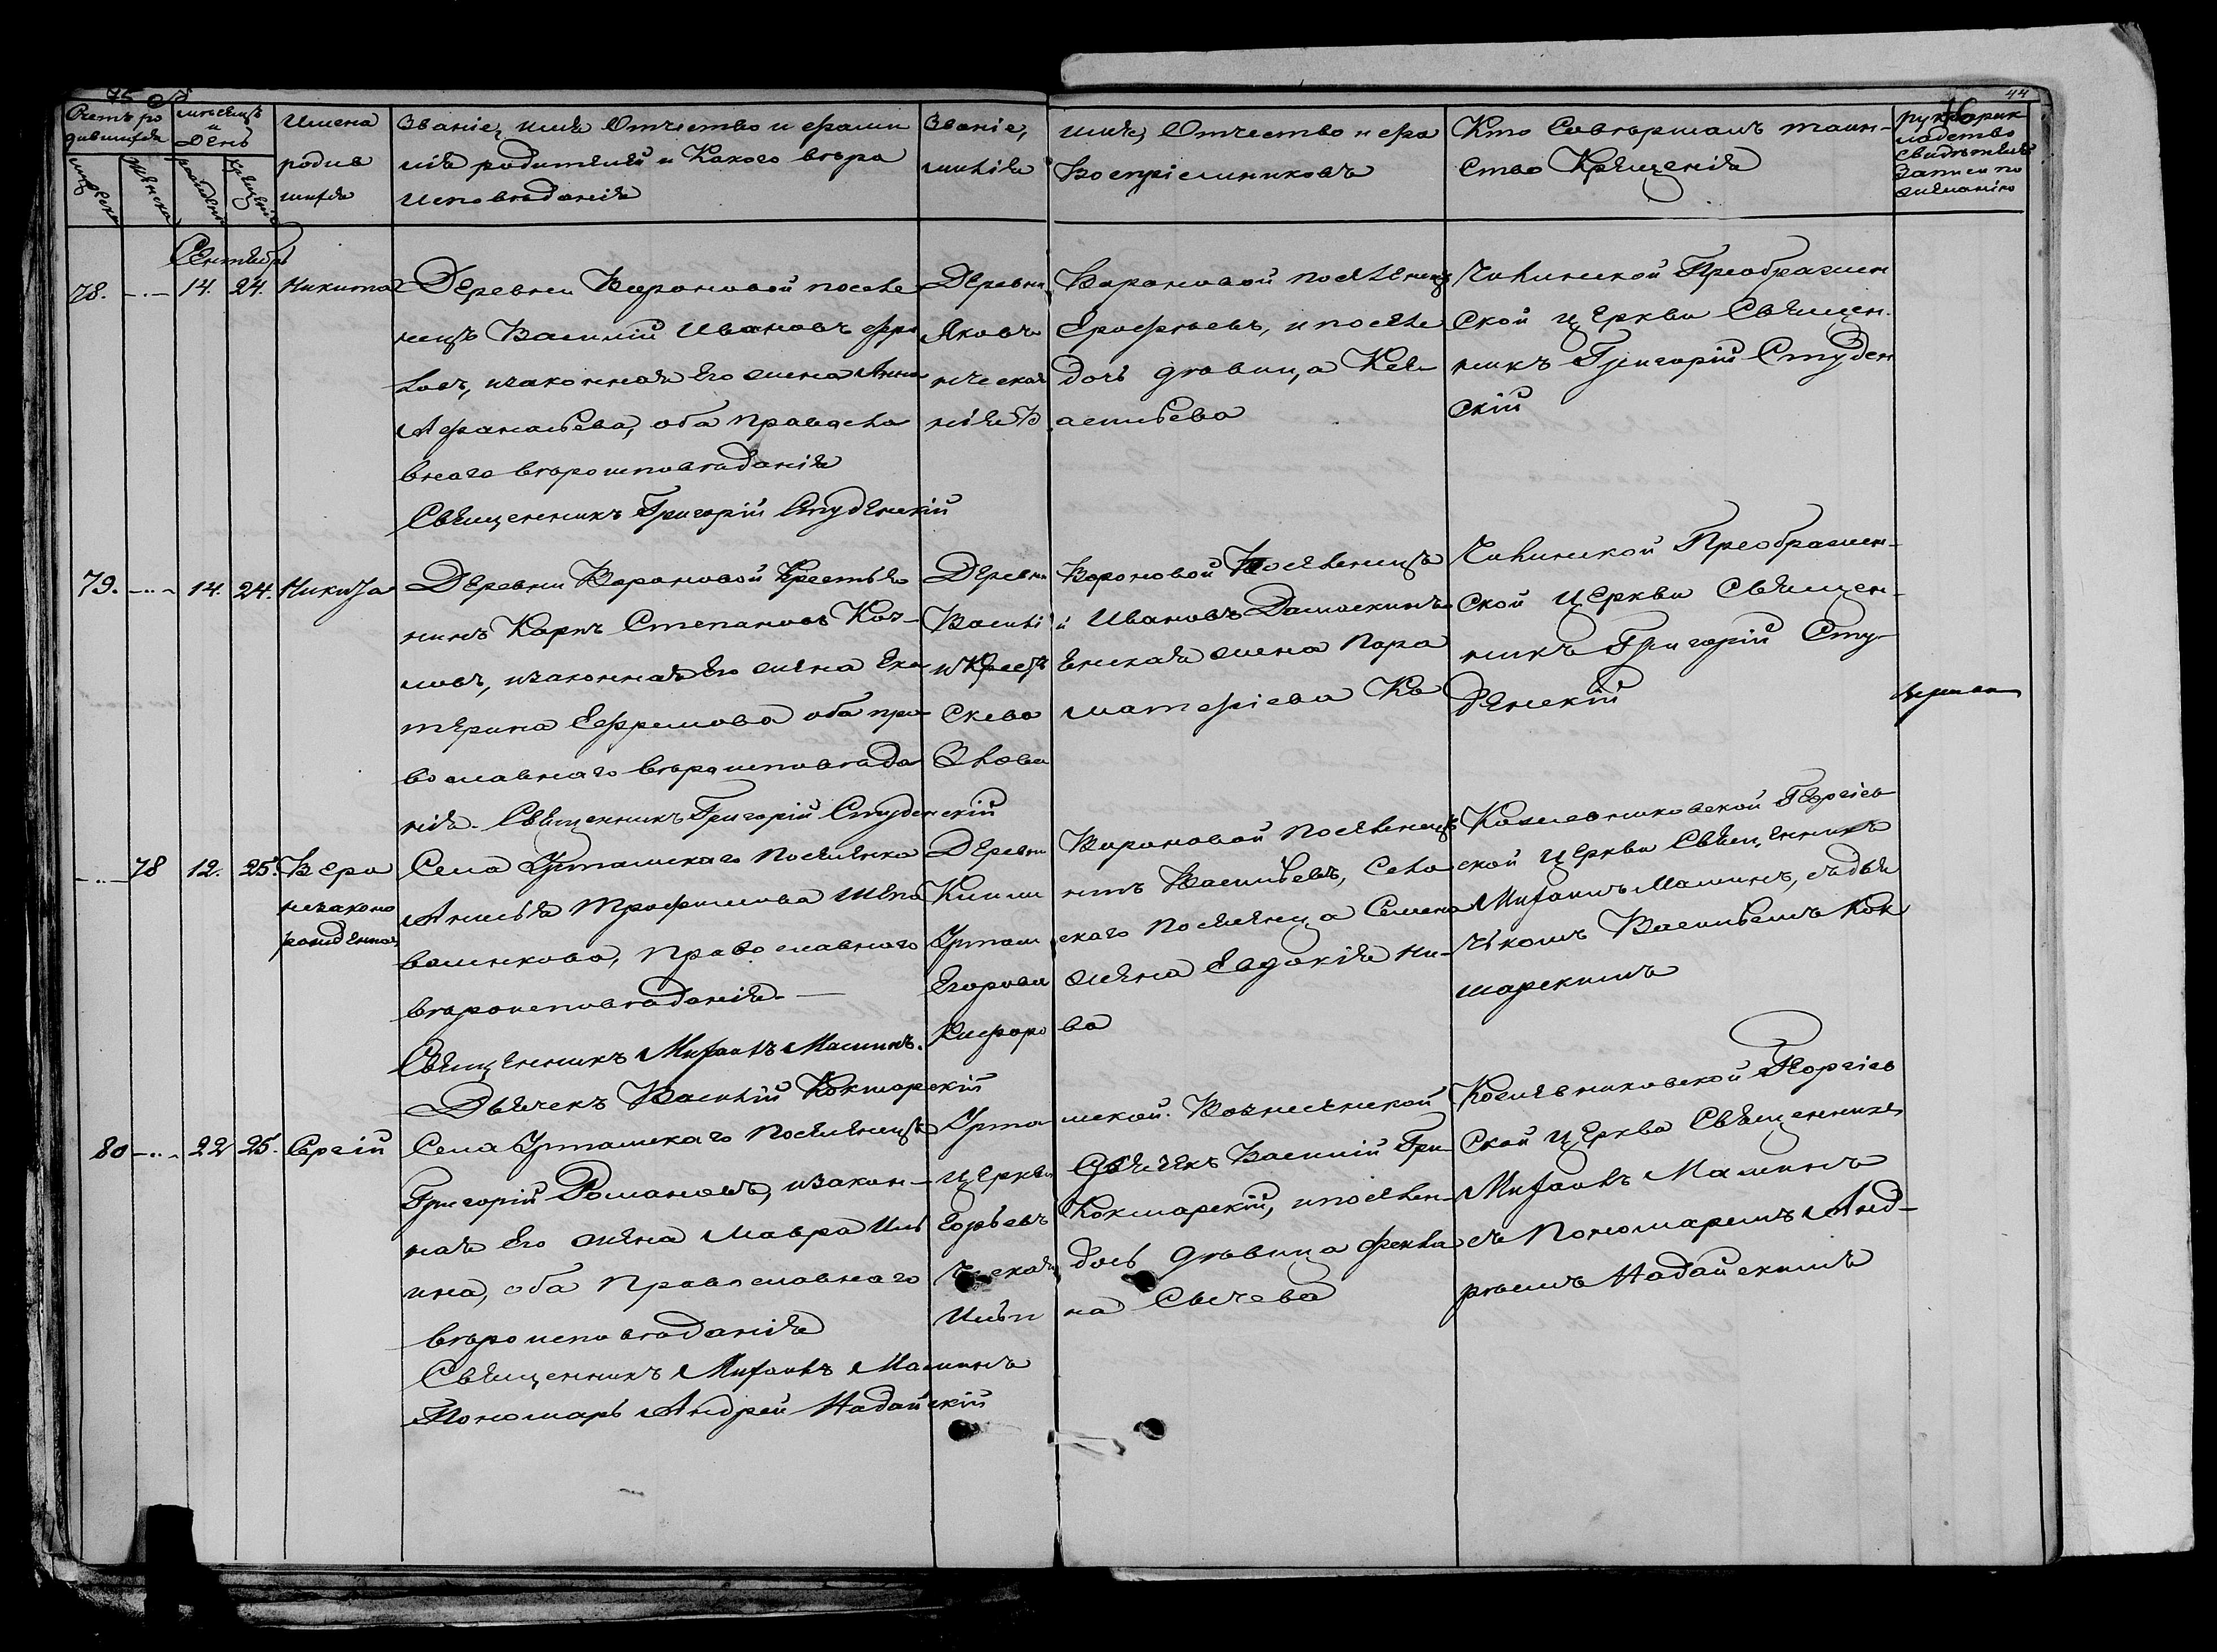 75 об
44
Счетъ родившихся
мужеска
женска
мѣсяцъ и День
рожденія
крещенія
Имена родившихся
Званіе, имя Отчество и фамилія родителей и Какого вѣроисповѣданія
Званіе, имя, Отчество и фамилія Воспріемниковъ
Кто Совершалъ таинство Крещенія
рукоприкладство свидѣтелей записи по желанію
Сентябрь
78. 14. 24. Никита
Деревни Вороновой поселенецъ Василій Ивановъ
и законная его жена Анна
Афанасьева, оба православнаго вѣроисповѣданія
Священникъ Григорій Студенскій
Деревни Вороновой поселенецъ
Яковъ Ерофѣевъ, и поселенческая дочь дѣвица
Васильева
Чилинской Преображенской церкви Священникъ Григорій Студенскій
79. 14. 24. Никита
Деревни Вороновой Крестьянинъ Карпъ Степановъ
и законная Его жена Екатерина Ефремова оба православнаго вѣроисповѣданія. Священникъ Григорій Студенскій
Деревни Вороновой Поселенецъ
Василій Ивановъ
и Крестьянская жена Параскева
Чилинской Преображенской Церкви Священникъ Григорій Студенскій
78 12. 25. Вера незаконорожденная
Села Уртамскаго Поселенка
Анисья Трофимова
Православнаго вѣроисповѣданія. —
Священникъ Михаилъ Машинъ.
Дьячекъ Василій Кокшарскій
Деревни Вороновой поселенецъ
Васильевъ, Села
Уртамскаго Поселенца Семена
Егорова жена Евдокія Никифорова
Кожевниковской Георгіевской Церкви Священникъ
Михаилъ Машинъ, съ дьячкомъ Васильемъ Кокшарскимъ
80 22 25. Сергій
Села Уртамскаго Поселенецъ
Григорій Романовъ, и законная Его жена Мавра
оба Православнаго вѣроисповѣданія
Священникъ Михаилъ Машинъ
Пономарь Андрей Надайскій
Уртамской Вознесенской
церкви Дьячекъ Василій Григорьевъ Кокшарскій, и поселенческая дочь дѣвица
Сычева
Кожевниковской Георгіевской Церкви Священникъ
Михаилъ Машинъ
съ Пономаремъ Андреемъ Надайскимъ